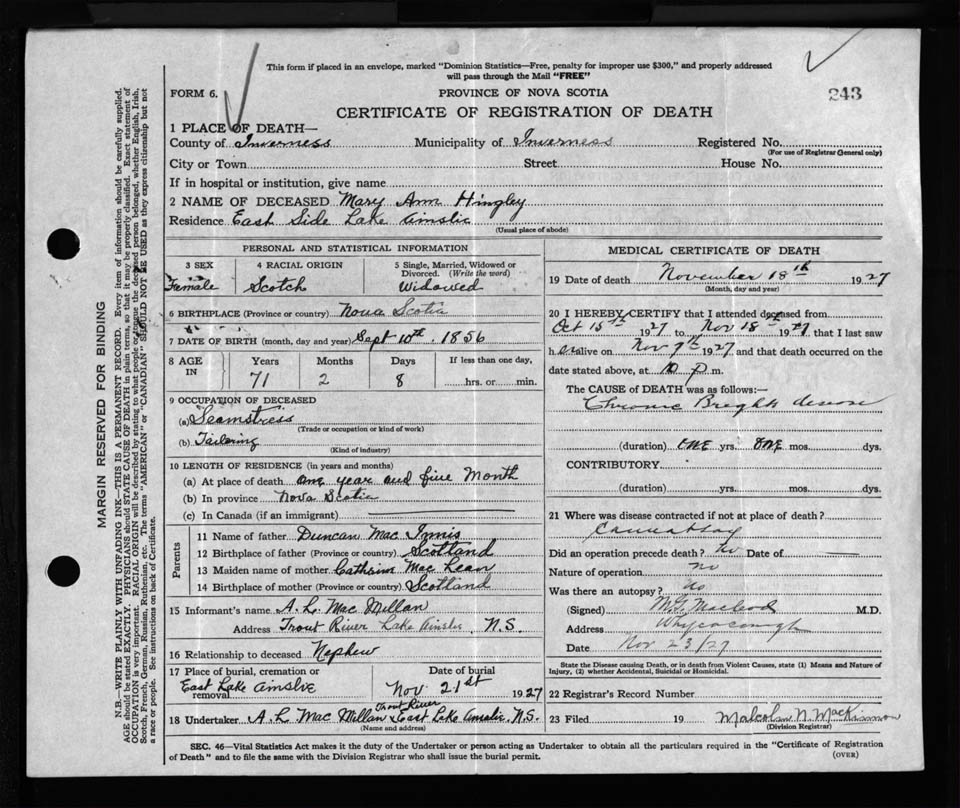 This form if placed in an envelope, marked "Dominion Statistics—Free, penalty for improper use $300," and properly addressed
will pass through the Mail "FREE"
FORM 6.
PROVINCE OF NOVA SCOTIA
243
CERTIFICATE OF REGISTRATION OF DEATH
1 PLACE OF DEATH—
County of Inverness Municipality of Inverness Registered No.
(For use of Registrar General only)
City or Town Street House No.
If in hospital or institution, give name
2 NAME OF DECEASED Mary Ann Hingley
Residence East Side Lake Ainslie
(Usual place of abode)
PERSONAL AND STATISTICAL INFORMATION
3 SEX 4 RACIAL ORIGIN 5 Single, Married, Widowed or
Divorced. (Write the word)
Female Scotch Widowed
6 BIRTHPLACE (Province or country) Nova Scotia
7 DATE OF BIRTH (month, day and year) Sept 10th 1856
8 AGE IN Years Months Days If less than one day,
71 2 8 hrs. or min.
9 OCCUPATION OF DECEASED
(a) Seamstress
(Trade or occupation or kind of work)
(b) Tailoring
(Kind of industry)
10 LENGTH OF RESIDENCE (in years and months)
(a) At place of death one year and five Month
(b) In province Nova Scotia
(c) In Canada (if an immigrant)
Parents
11 Name of father Duncan Mac Innis
12 Birthplace of father (Province or country) Scotland
13 Maiden name of mother Catherine Mac Lean
14 Birthplace of mother (Province or country) Scotland
15 Informant's name A. L. Mac Millan
Address Trout River Lake Ainslie N.S.
16 Relationship to deceased Nephew
17 Place of burial, cremation or removal Date of burial
East Lake Ainslie Nov. 21st 1927
Trout River
18 Undertaker A L Mac Millan East Lake Ainslie N.S.
(Name and address)
MEDICAL CERTIFICATE OF DEATH
19 Date of death November 18th 1927
(Month, day and year)
20 I HEREBY CERTIFY that I attended deceased from
Oct 15th 1927 to Nov 18th 1927, that I last saw
her alive on Nov 9th 1927 and that death occurred on the
date stated above, at 10 p m.
The CAUSE of DEATH was as follows:—
Chronic Brights disease
(duration) ONE yrs. ONE mos. dys.
CONTRIBUTORY
(duration) yrs. mos. dys.
21 Where was disease contracted if not at place of death?
Cannot say
Did an operation precede death? No Date of
Nature of operation no
Was there an autopsy? No
(Signed) MacLeod M.D.
Address Whycocomagh
Date Nov 23/27
State the Disease causing Death, or in death from Violent Causes, state (1) Means and Nature of
Injury, (2) whether Accidental, Suicidal or Homicidal.
22 Registrar's Record Number
23 Filed 19 Malcolm N. MacKinnon
(Division Registrar)
SEC. 46—Vital Statistics Act makes it the duty of the Undertaker or person acting as Undertaker to obtain all the particulars required in the "Certificate of Registration
of Death" and to file the same with the Division Registrar who shall issue the burial permit.
(OVER)
MARGIN RESERVED FOR BINDING
N.B.—WRITE PLAINLY WITH UNFADING INK—THIS IS A PERMANENT RECORD. Every item of information should be carefully supplied.
AGE should be stated EXACTLY. PHYSICIANS should STATE CAUSE OF DEATH in plain terms, so that it may be properly classified. Exact statement of
OCCUPATION is very important. RACIAL ORIGIN will be described by stating to what people or the deceased person belonged, whether English, Irish,
Scotch, French, German, Russian, Ruthenian, etc. The terms "AMERICAN" or "CANADIAN" SHOULD NOT BE USED as they express citizenship but not
a race or people. See instructions on back of Certificate.